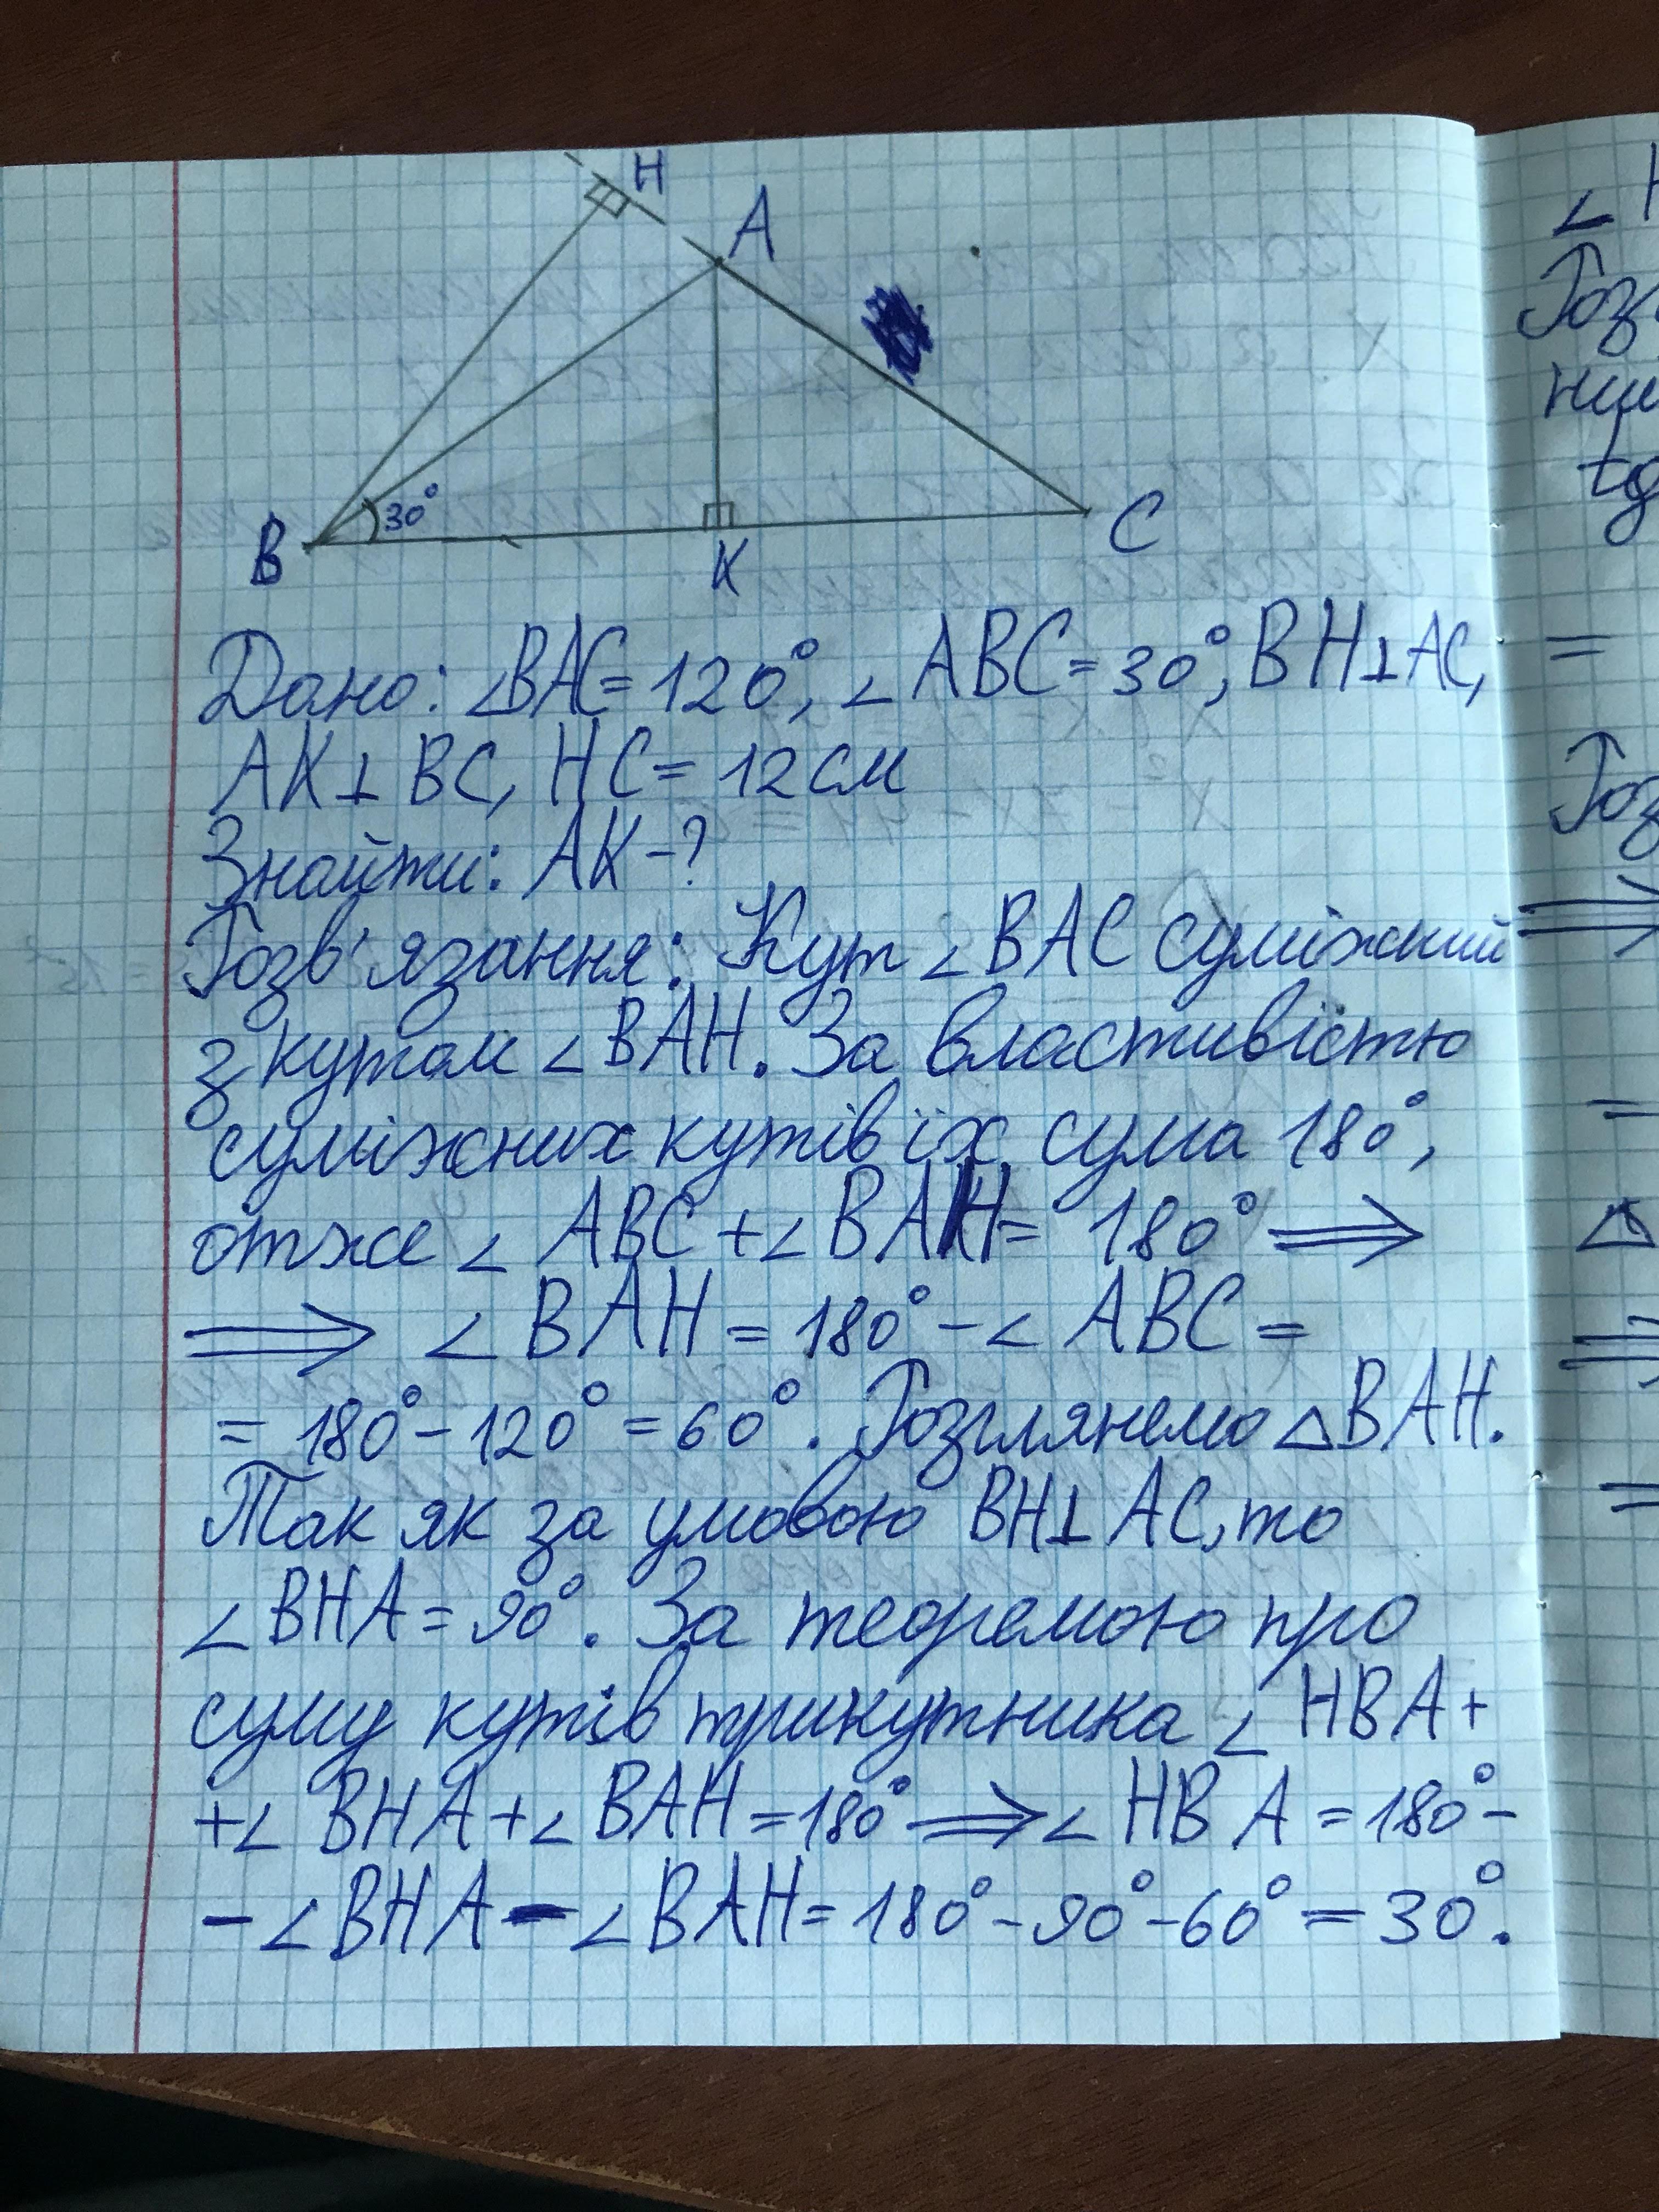 H
A
30°
B
K
C
Дано: ∠BAC = 120°, ∠ABC = 30°, BH⊥AC,
AK⊥BC, HC = 12 см
Знайти: AK - ?
Розв'язання: Кут ∠BAC суміжний
з кутом ∠BAH. За властивістю
суміжних кутів їх сума 180°,
отже ∠ABC + ∠BAH = 180° ⟹
⟹ ∠BAH = 180° - ∠ABC =
= 180° - 120° = 60°. Розглянемо △BAH.
Так як за умовою BH⊥AC, то
∠BHA = 90°. За теоремою про
суму кутів трикутника ∠HBA +
+ ∠BHA + ∠BAH = 180° ⟹ ∠HBA = 180° -
- ∠BHA - ∠BAH = 180° - 90° - 60° = 30°.
∠
Роз
ни
tg
=
Роз
⟹
=
△
⟹
=